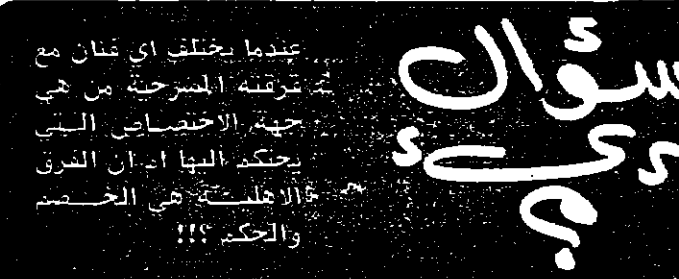 سؤال
بريء
؟
عندما يختلف اي فنان مع
فرقته المسرحية من هي
جهة الاختصاص التي
يحتكم اليها اذ ان الفرق
الاهلية هي الخصم
والحكم ؟!!!